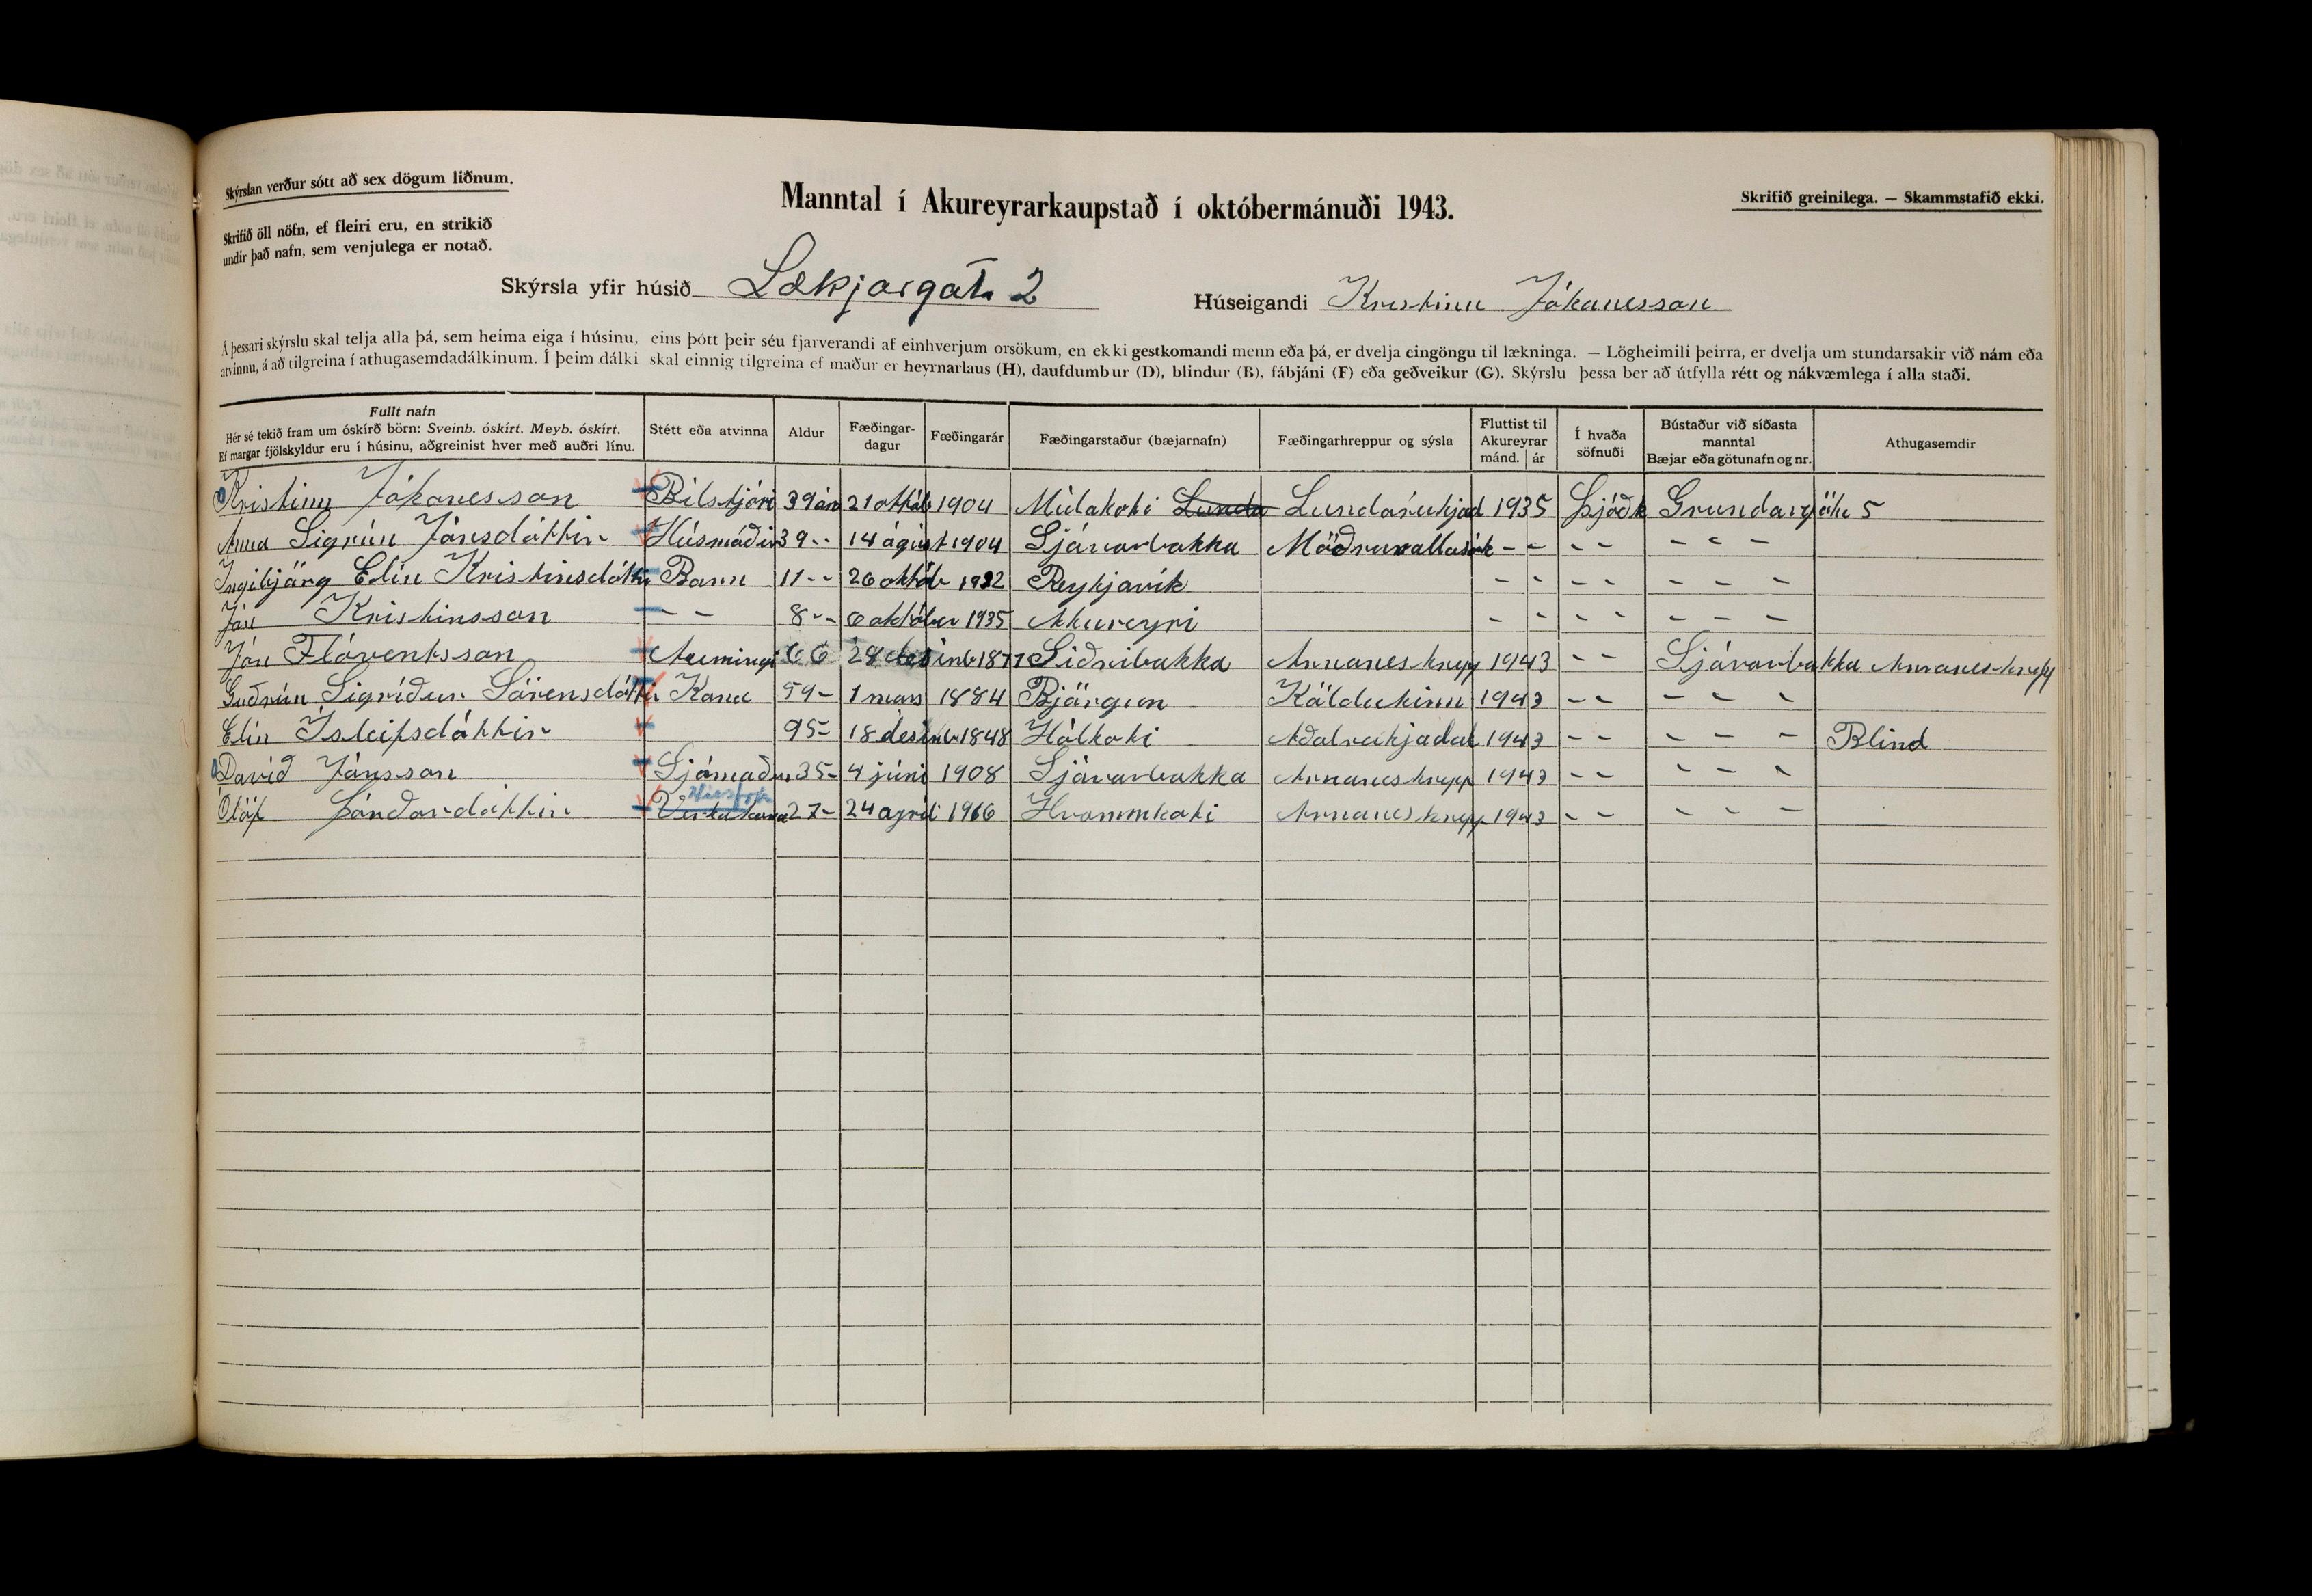 Skýrslan verður sótt að sex dögum liðnum.
Skrifið öll nöfn, ef fleiri eru, en strikið
undir það nafn, sem venjulega er notað.
Manntal í Akureyrarkaupstað í októbermánuði 1943.
Skrifið greinilega. — Skammstafið ekki.
Skýrsla yfir húsið Lækjargata 2 Húseigandi Kristinn Jóhannesson
Á þessari skýrslu skal telja alla þá, sem heima eiga í húsinu, eins þótt þeir séu fjarverandi af einhverjum orsökum, en ekki gestkomandi menn eða þá, er dvelja eingöngu til lækninga. — Lögheimili þeirra, er dvelja um stundarsakir við nám eða
atvinnu, á að tilgreina í athugasemdadálkinum. Í þeim dálki skal einnig tilgreina ef maður er heyrnarlaus (H), daufdumbur (D), blindur (B), fábjáni (F) eða geðveikur (G). Skýrslu þessa ber að útfylla rétt og nákvæmlega í alla staði.
Fullt nafn
Hér sé tekið fram um óskírð börn: Sveinb. óskírt. Meyb. óskírt.
Ef margar fjölskyldur eru í húsinu, aðgreinist hver með auðri línu.
Stétt eða atvinna
Aldur
Fæðingar-
dagur
Fæðingarár
Fæðingarstaður (bæjarnafn)
Fæðingarhreppur og sýsla
Fluttist til
Akureyrar
mánd. ár
Í hvaða
söfnuði
Bústaður við síðasta
manntal
Bæjar eða götunafn og nr.
Athugasemdir
Kristinn Jóhannesson Bílstjóri 39 ára 21 október 1904 Múlakoti Lunda Lundareykjad 1935 Þjóðk Grundargötu 5
Anna Sigrún Jónsdóttir Húsmóðir 39 - - 14 ágúst 1904 Sjávarbakka Möðruvallasók - - - - - - -
Ingibjörg Elín Kristinsdóttir Barn 11 - - 26 októb 1932 Reykjavík - - - - - - -
Jón Kristinsson - - 8 - - 6 október 1935 Akureyri - - - - - - -
Jón Flóventsson 66 28 desemb 1877 Siðribakka Arnaneshrepp 1943 - - Sjávarbakka Arnaneshrepp
Guðrún Sigríður Sörensdóttir Kona 59 - 1 mars 1884 Björgum Köldukinn 1943 - - - - -
Elín Ísleifsdóttir 95 - 18 desemb 1848 Hólkoti Aðalreykjadal 1943 - - - - - Blind
Davíð Jónsson Sjómaður 35 - 4 júní 1908 Sjávarbakka Arnaneshrepp 1943 - - - - -
Ólöf Þórðardóttir Verkakona 27 - 24 apríl 1916 Hvammkoti Arnaneshrepp 1943 - - - - -